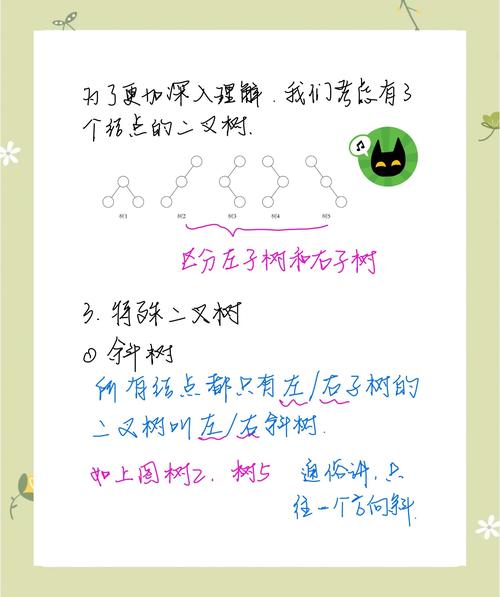 为了更加深入理解,我们考虑有3
个结点的二叉树.
树1 树2 树3 树4 树5
区分左子树和右子树
3. 特殊二叉树
① 斜树
所有结点都只有左/右子树的
二叉树叫左/右斜树.
如上图树2、树5 通俗讲,只
往一个方向斜.